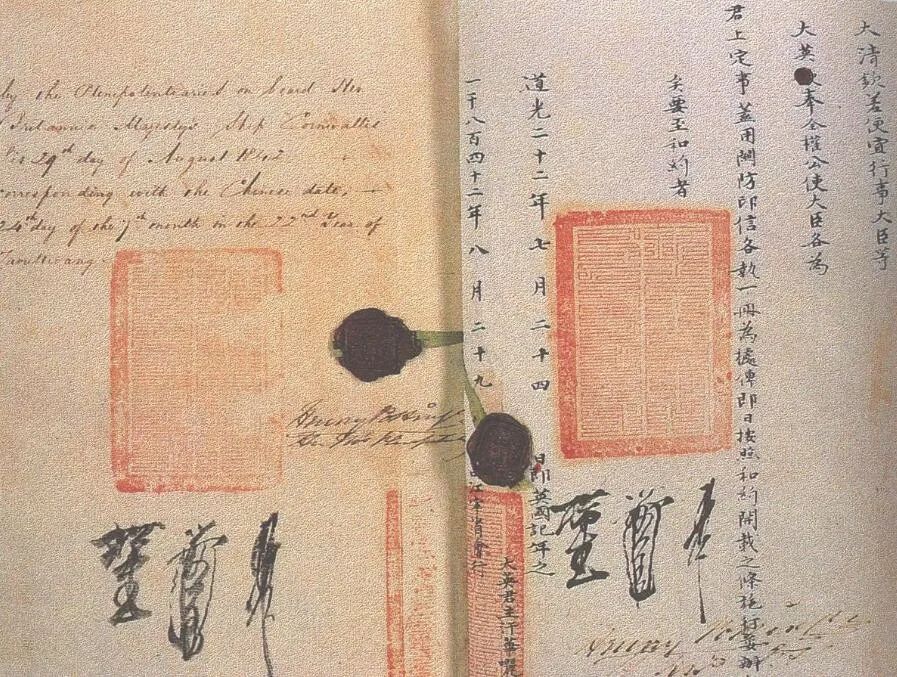 by the Plenipotentiaries on board Her
Britannic Majesty's Ship Cornwallis
this 29th day of August 1842
corresponding with the Chinese date,
24th day of the 7th month in the 22nd Year of
Taoukwang
Henry Pottinger
大清欽差便宜行事大臣等
大英欽奉全權公使大臣各為
君上定事蓋用關防印信各執一冊為據俾即日按照和約開載之條施行妥辦
矣要至和約者
道光二十二年七月二十四日即英國記年之
一千八百四十二年八月二十九日由江寧省會行
大英君主汗華麗
Henry Pottinger